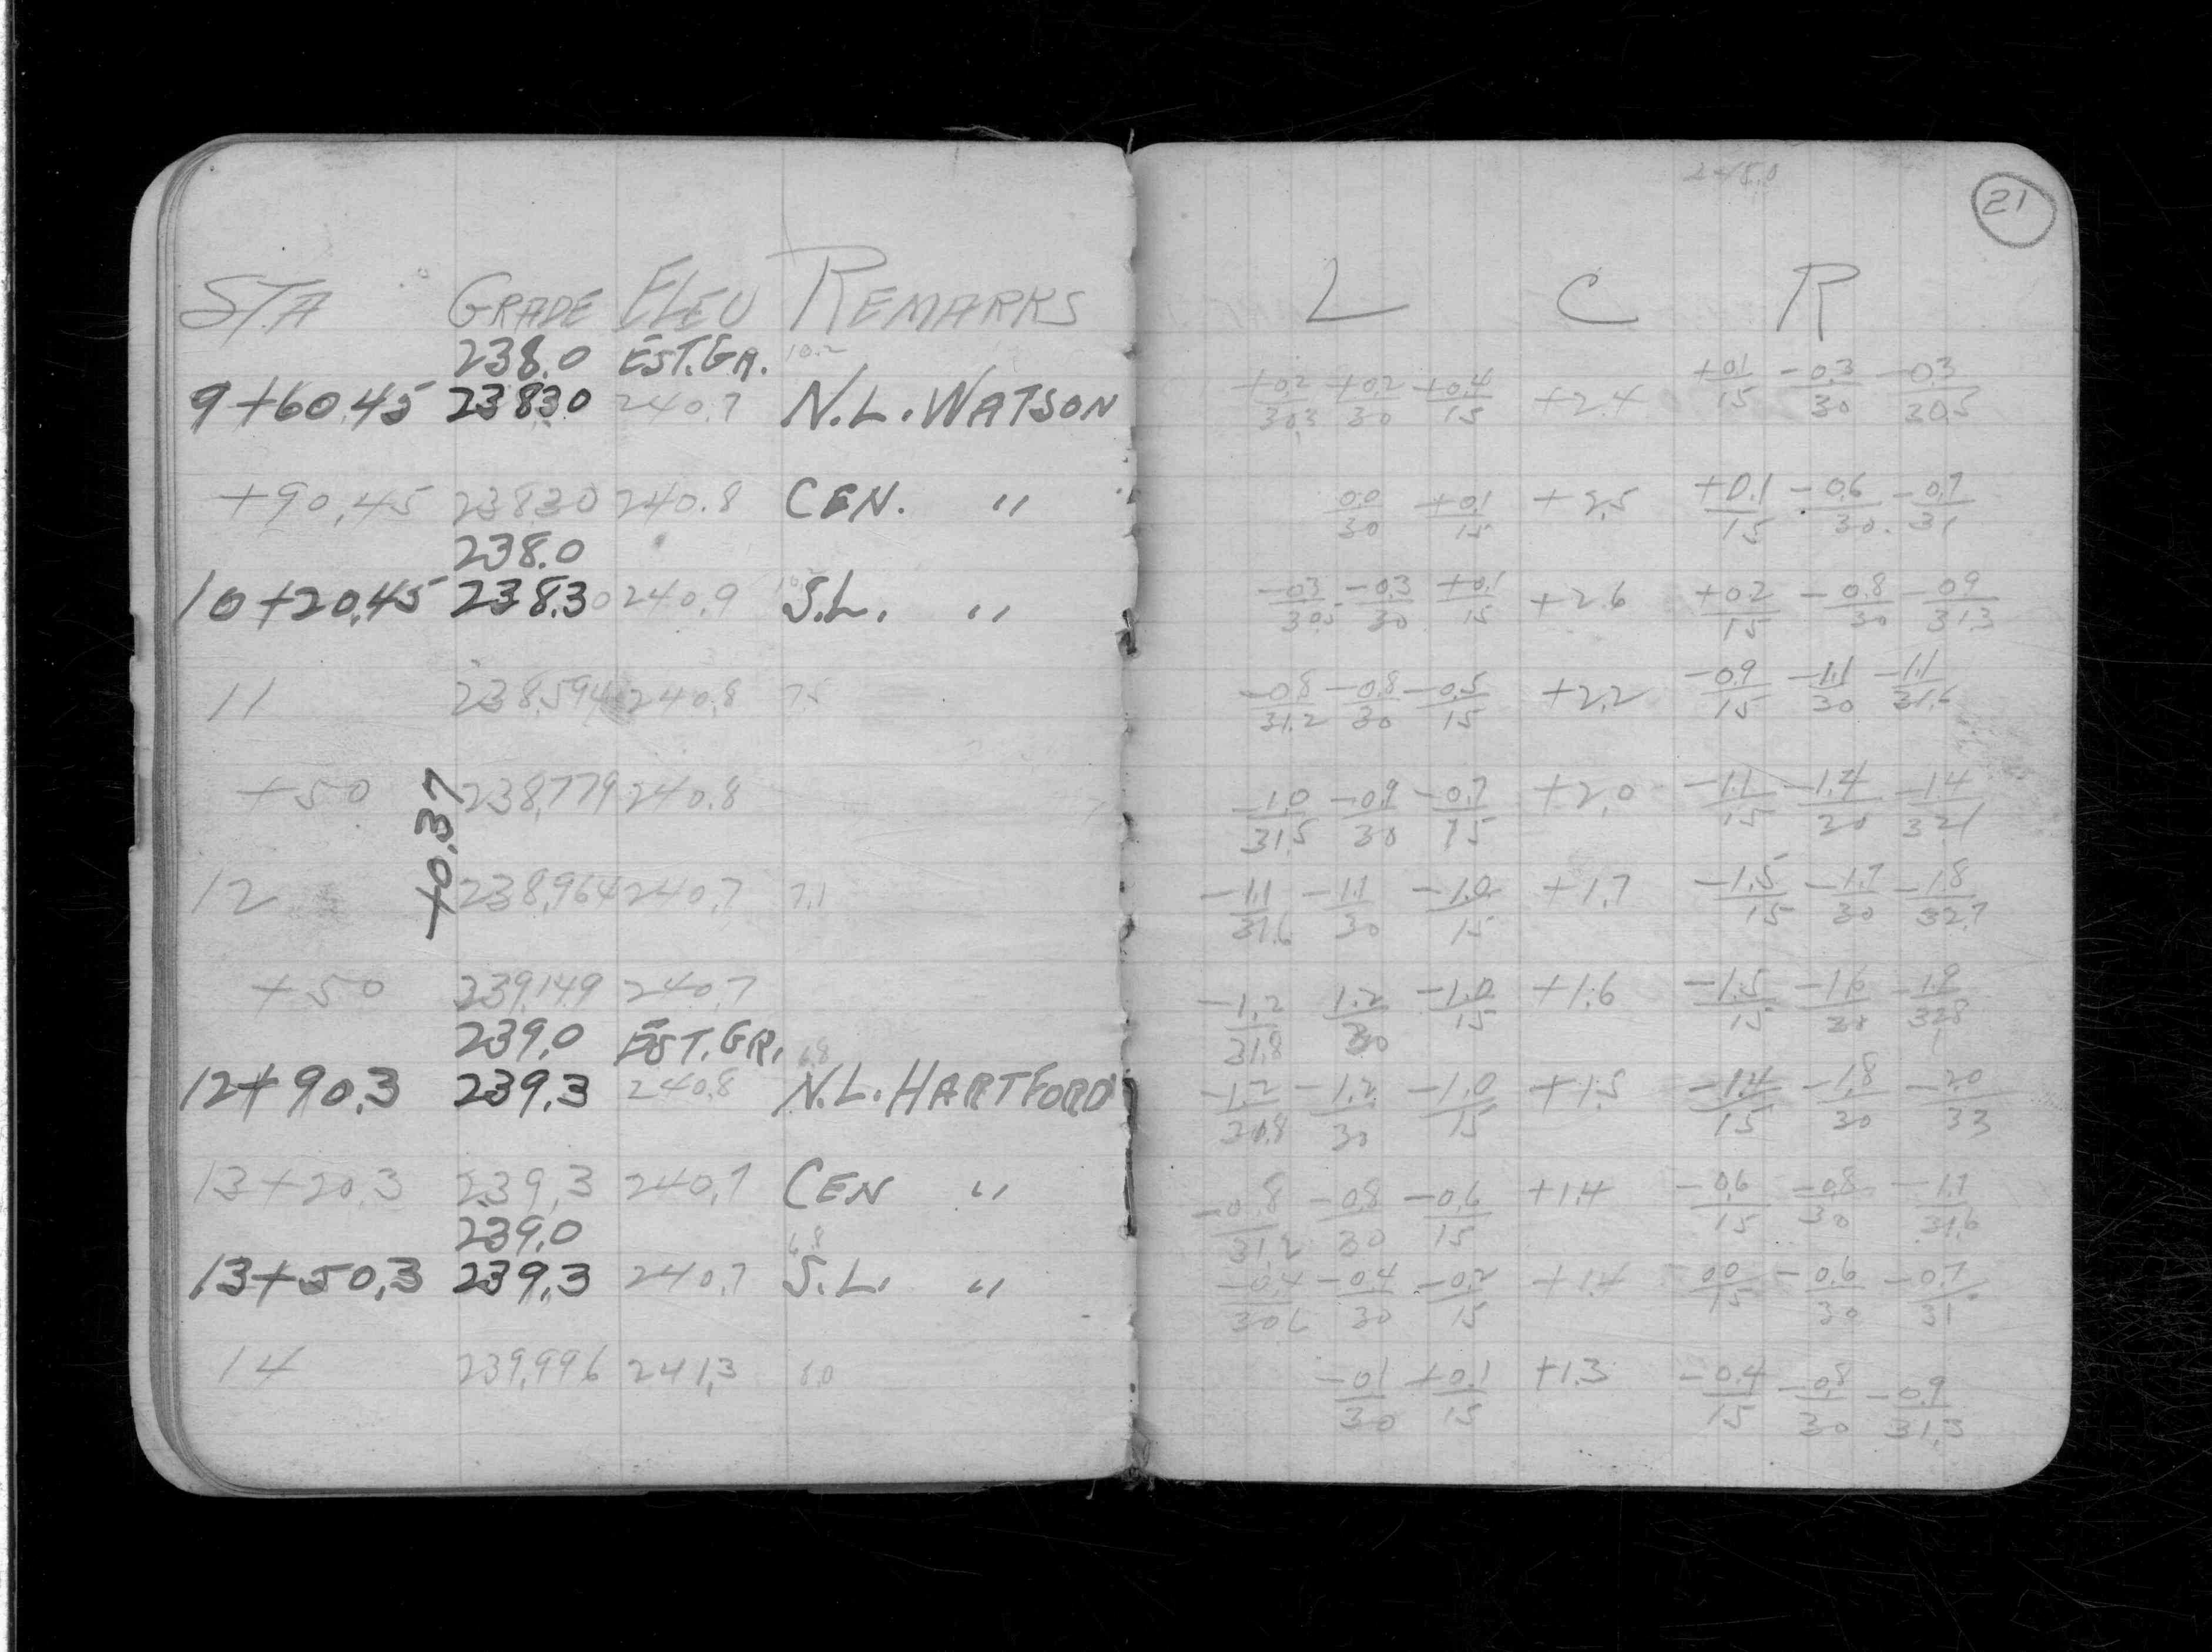 STA GRADE ELEV REMARKS
238.0 EST. GR. 10.2
9+60.45 238.30 240.7 N.L. WATSON
+90.45 238.30 240.8 CEN. "
238.0
10+20.45 238.30 240.9 S.L. "
11 238.594 240.8 7.5
+50 238.779 240.8
+0.37
12 238.964 240.7 7.1
+50 239.149 240.7
239.0 EST. GR. 6.8
12+90.3 239.3 240.8 N.L. HARTFORD
13+20.3 239.3 240.7 CEN "
239.0 6.8
13+50.3 239.3 240.7 S.L. "
14 239.996 241.3 6.0
245.0
21
L C R
+0.2/30.3 +0.2/30 +0.4/15 +2.4 +0.1/15 -0.3/30 -0.3/30.5
0.0/30 +0.1/15 +2.5 +0.1/15 -0.6/30 -0.7/31
-0.3/30.5 -0.3/30 +0.1/15 +2.6 +0.2/15 -0.8/30 -0.9/31.3
-0.8/31.2 -0.8/30 -0.5/15 +2.2 -0.9/15 -1.1/30 -1.1/31.6
-1.0/31.5 -0.9/30 -0.7/15 +2.0 -1.1/15 -1.4/30 -1.4/32.1
-1.1/31.6 -1.1/30 -1.0/15 +1.7 -1.5/15 -1.7/30 -1.8/32.7
-1.2/31.8 1.2/30 -1.0/15 +1.6 -1.5/15 -1.6/30 -1.9/32.8
-1.2/31.8 -1.2/30 -1.0/15 +1.5 -1.4/15 -1.8/30 -2.0/33
-0.8/31.2 -0.8/30 -0.6/15 +1.4 -0.6/15 -0.8/30 -1.1/31.6
-0.4/30.6 -0.4/30 -0.2/15 +1.4 0.0/15 -0.6/30 -0.7/31
-0.1/30 +0.1/15 +1.3 -0.4/15 -0.8/30 -0.9/31.3